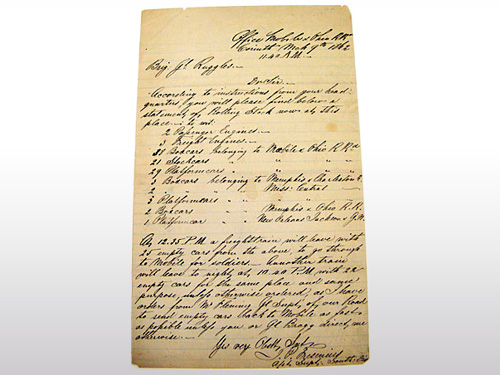 Office Mobile & Ohio R.R.
Corinth Mch 9th 1862
11.40 A.M.
Brig Gl. Ruggles.
Dr Sir.
According to instructions from your head-
quarters, you will please find below a
statement of Rolling Stock now at this
place to wit:
2 Passenger Engines.
3 Freight Engines.
38 Boxcars belonging to Mobile & Ohio R.R.
21 Stockcars " " "
29 Platformcars " " "
3 Boxcars belonging to Memphis & Charleston
2 " " " Miss. Central
3 Platformcars " " "
2 Boxcars " Memphis & Ohio R.R.
1 Platformcar " New Orleans Jackson & G.N.
At 12.35 P.M. a freight train will leave with
25 empty cars from the above to go through
to Mobile for soldiers. Another train
will leave to night at 10.40 P.M. with 22
empty cars for the same place and same
purpose, unless otherwise ordered, as I have
orders from Mr Fleming Gl Supt. of our Road
to send empty cars back to Mobile as fast
as possible unless you or Gl Bragg direct me
otherwise.
Yrs very